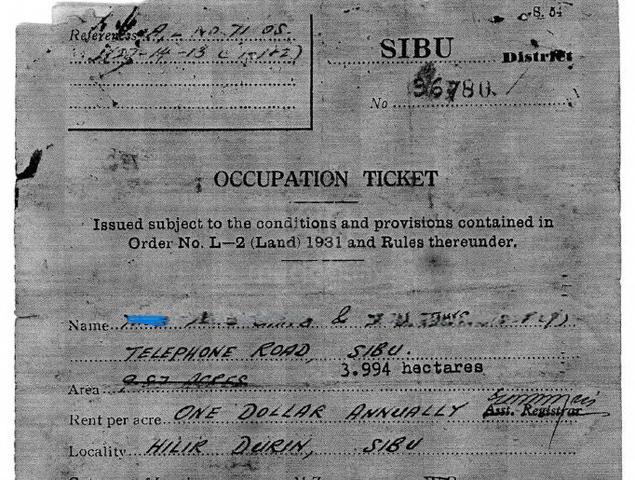 S. 54
Reference A, L NO. 71 OS.
SIBU
District
No 96780.
OCCUPATION TICKET
Issued subject to the conditions and provisions contained in
Order No. L—2 (Land) 1931 and Rules thereunder.
Name &
TELEPHONE ROAD, SIBU.
3.994 hectares
Area 9.87 ACRES
Rent per acre ONE DOLLAR ANNUALLY
Asst. Registrar
Locality HILIR DURIN, SIBU